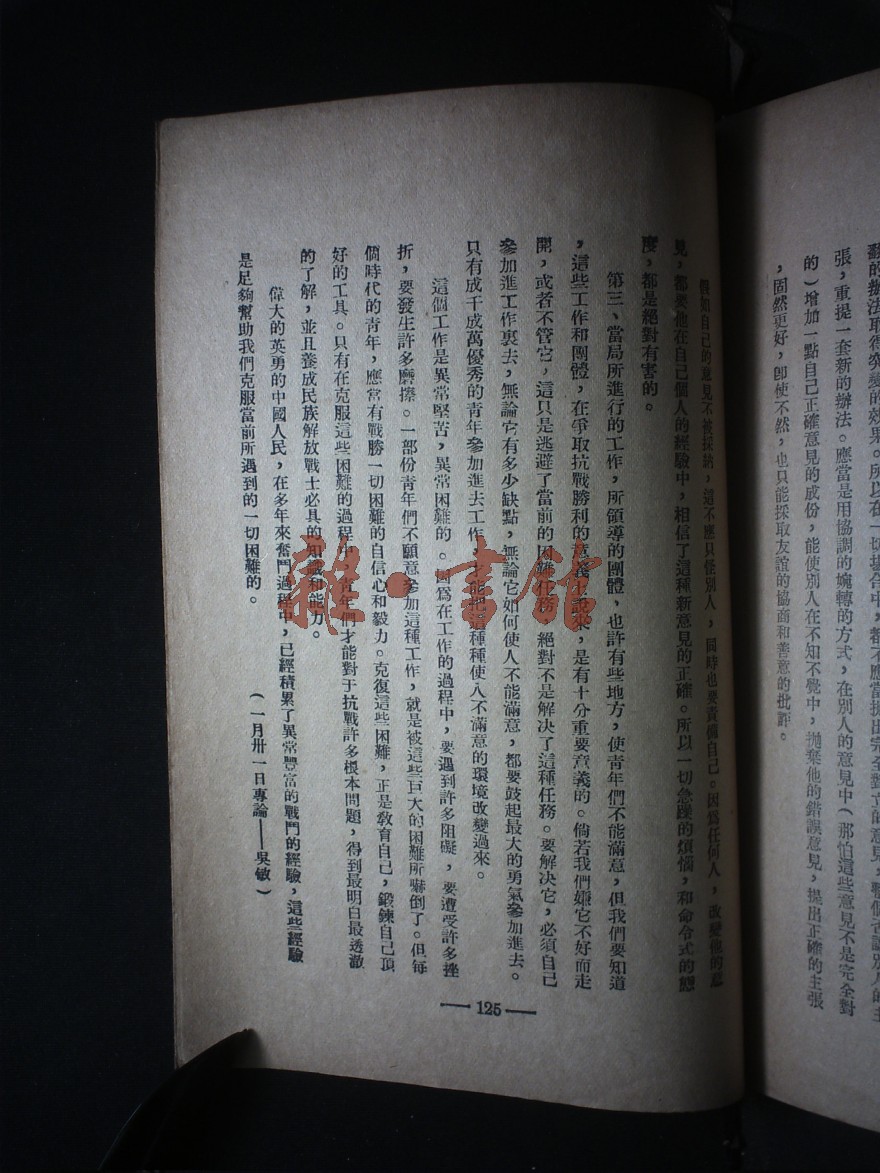 張，重提一套新的辦法。應當是用協調的婉轉的方式，在別人的意見中（那怕這些意見不是完全對
的）增加一點自己正確意見的成份，能使別人在不知不覺中，拋棄他的錯誤意見，提出正確的主張
，固然更好，卽使不然，也只能採取友誼的協商和善意的批評。
假如自己的意見不被採納，這不應只怪別人，同時也要責備自己。因爲任何人，改變他的意
見，都要他在自己個人的經驗中，相信了這種新意見的正確。所以一切急躁的煩惱，和命令式的態
度，都是絕對有害的。
第三、當局所進行的工作，所領導的團體，也許有些地方，使青年們不能滿意，但我們要知道
，這些工作和團體，在爭取抗戰勝利的意義上說來，是有十分重要意義的。倘若我們嫌它不好而走
開，或者不管它，這只是逃避了當前的困難任務，絕對不是解決了這種任務。要解決它，必須自己
參加進工作裏去，無論它有多少缺點，無論它如何使人不能滿意，都要鼓起最大的勇氣參加進去。
只有成千成萬優秀的青年參加進去工作，才能把這種種使人不滿意的環境改變過來。
這個工作是異常堅苦，異常困難的。因爲在工作的過程中，要遇到許多阻礙，要遭受許多挫
折，要發生許多磨擦。一部份青年們不願意參加這種工作，就是被這些巨大的困難所嚇倒了。但每
個時代的青年，應當有戰勝一切困難的自信心和毅力。克復這些困難，正是敎育自己，鍛鍊自己頂
好的工具。只有在克服這些困難的過程中，青年們才能對于抗戰許多根本問題，得到最明白最透澈
的了解，並且養成民族解放戰士必具的知識和能力。
偉大的英勇的中國人民，在多年來奮鬥過程中，已經積累了異常豐富的戰鬥的經驗，這些經驗
是足夠幫助我們克服當前所遇到的一切困難的。
（一月卅一日專論——吳敏）
—125—
雜·書館